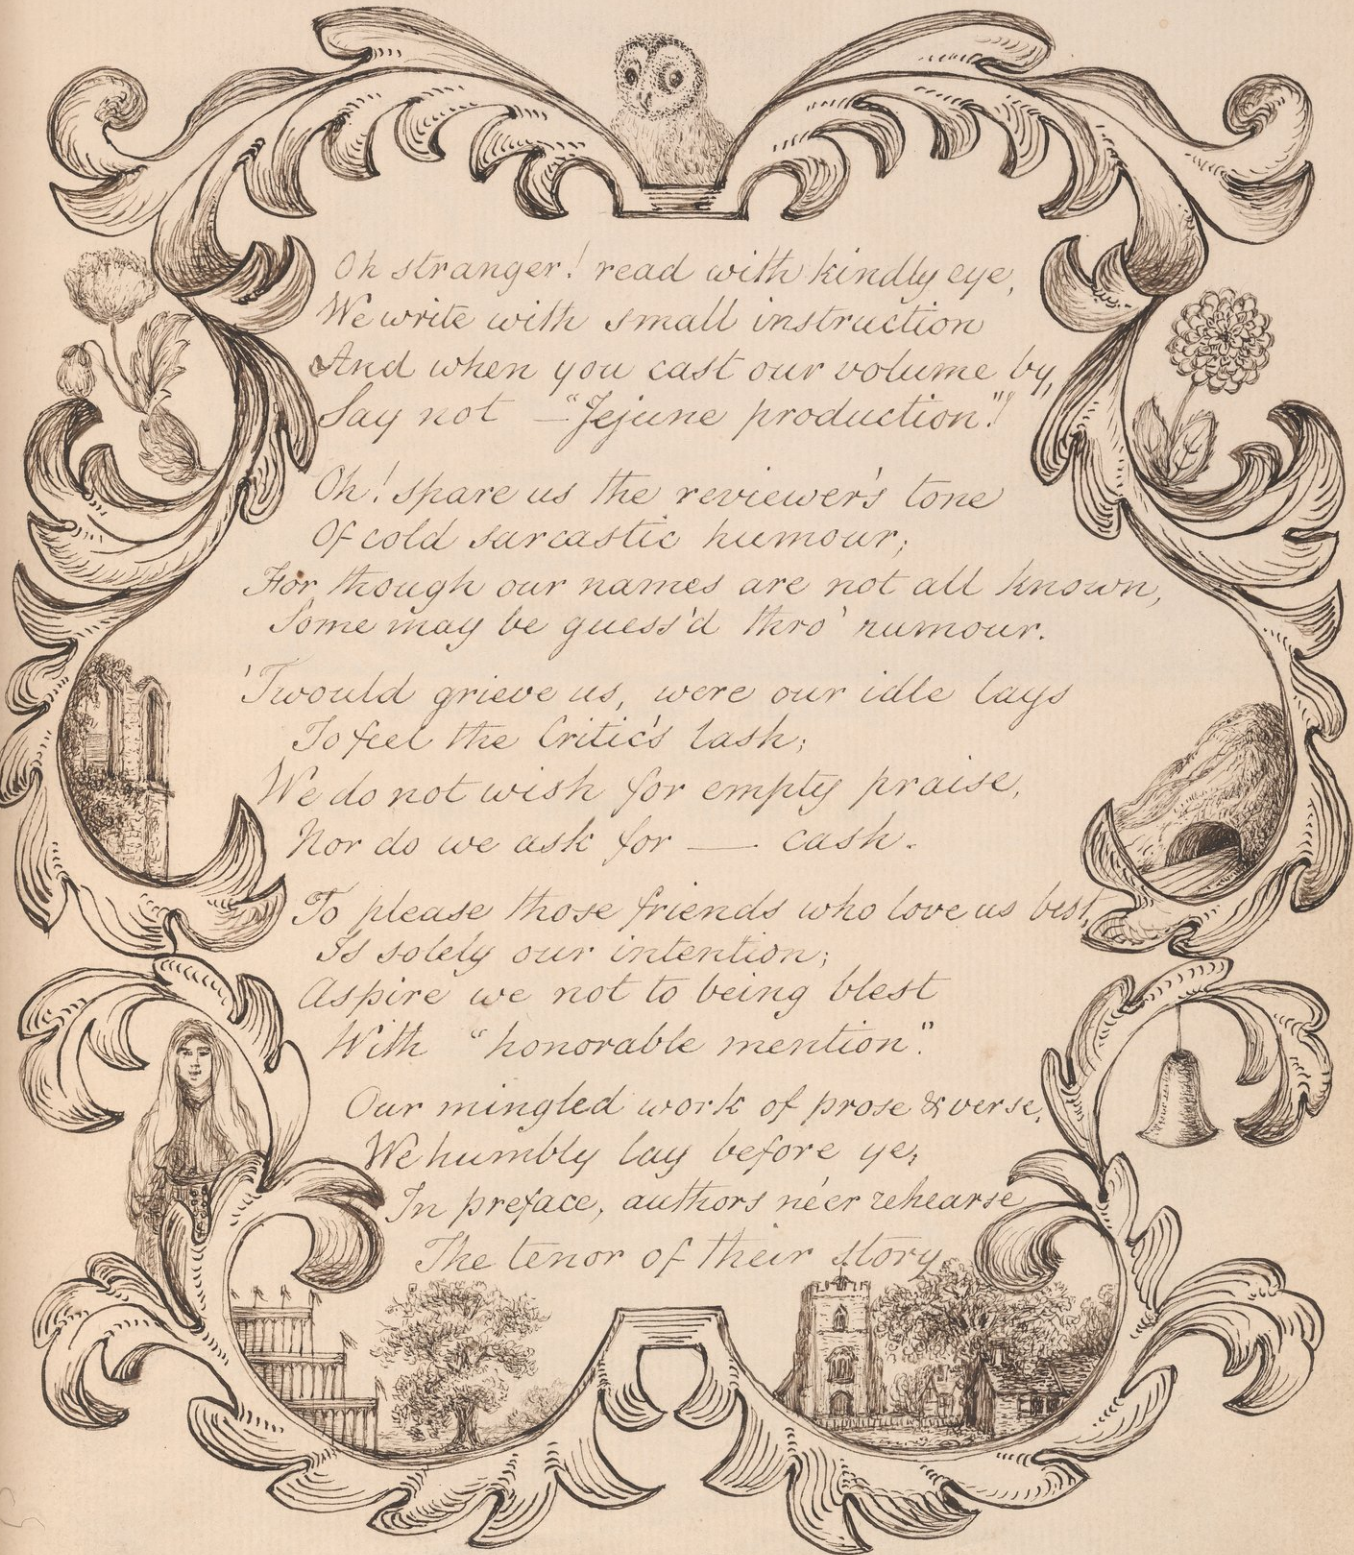 Oh stranger! read with kindly eye,
We write with small instruction
And when you cast our volume by,
Say not — "Jejune production"!
Oh! spare us the reviewer's tone
Of cold sarcastic humour;
For though our names are not all known,
Some may be guess'd thro' rumour.
'Twould grieve us, were our idle lays
To feel the Critic's lash;
We do not wish for empty praise,
Nor do we ask for — cash.
To please those friends who love us best,
Is solely our intention;
Aspire we not to being blest
With "honorable mention".
Our mingled work of prose & verse,
We humbly lay before ye;
In preface, authors ne'er rehearse
The tenor of their story.